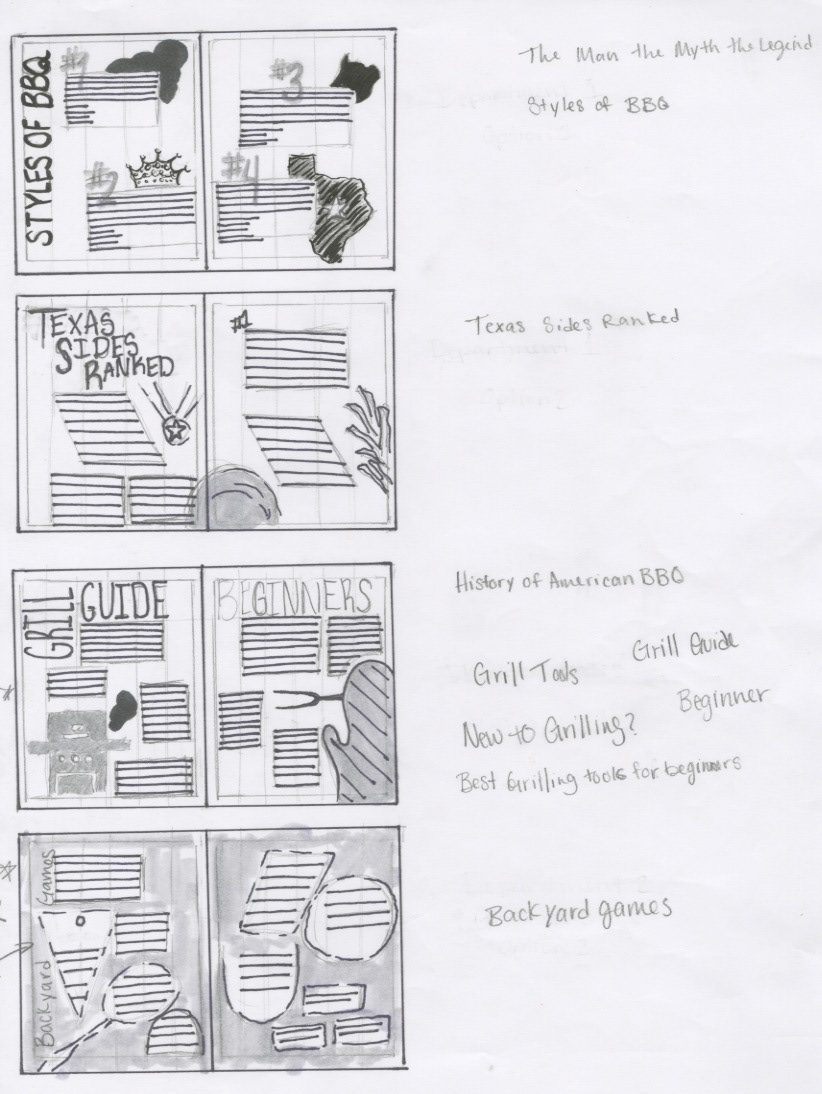 STYLES OF BBQ
#1
#2
#3
#4
The Man the Myth the Legend
Styles of BBQ
TEXAS
SIDES
RANKED
#1
Texas Sides Ranked
GRILL GUIDE
BEGINNERS
History of American BBQ
Grill Guide
Grill Tools
Beginner
New to Grilling?
Best Grilling tools for beginners
Backyard Games
Backyard games